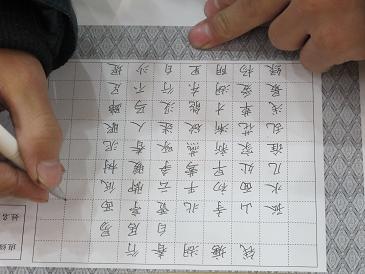 钱塘湖春行
白居易
孤山寺北贾亭西
水面初平云脚低
几处早莺争暖树
谁家新燕啄春泥
乱花渐欲迷人眼
浅草才能没马蹄
最爱湖东行不足
绿杨阴里白沙堤
班级
姓名